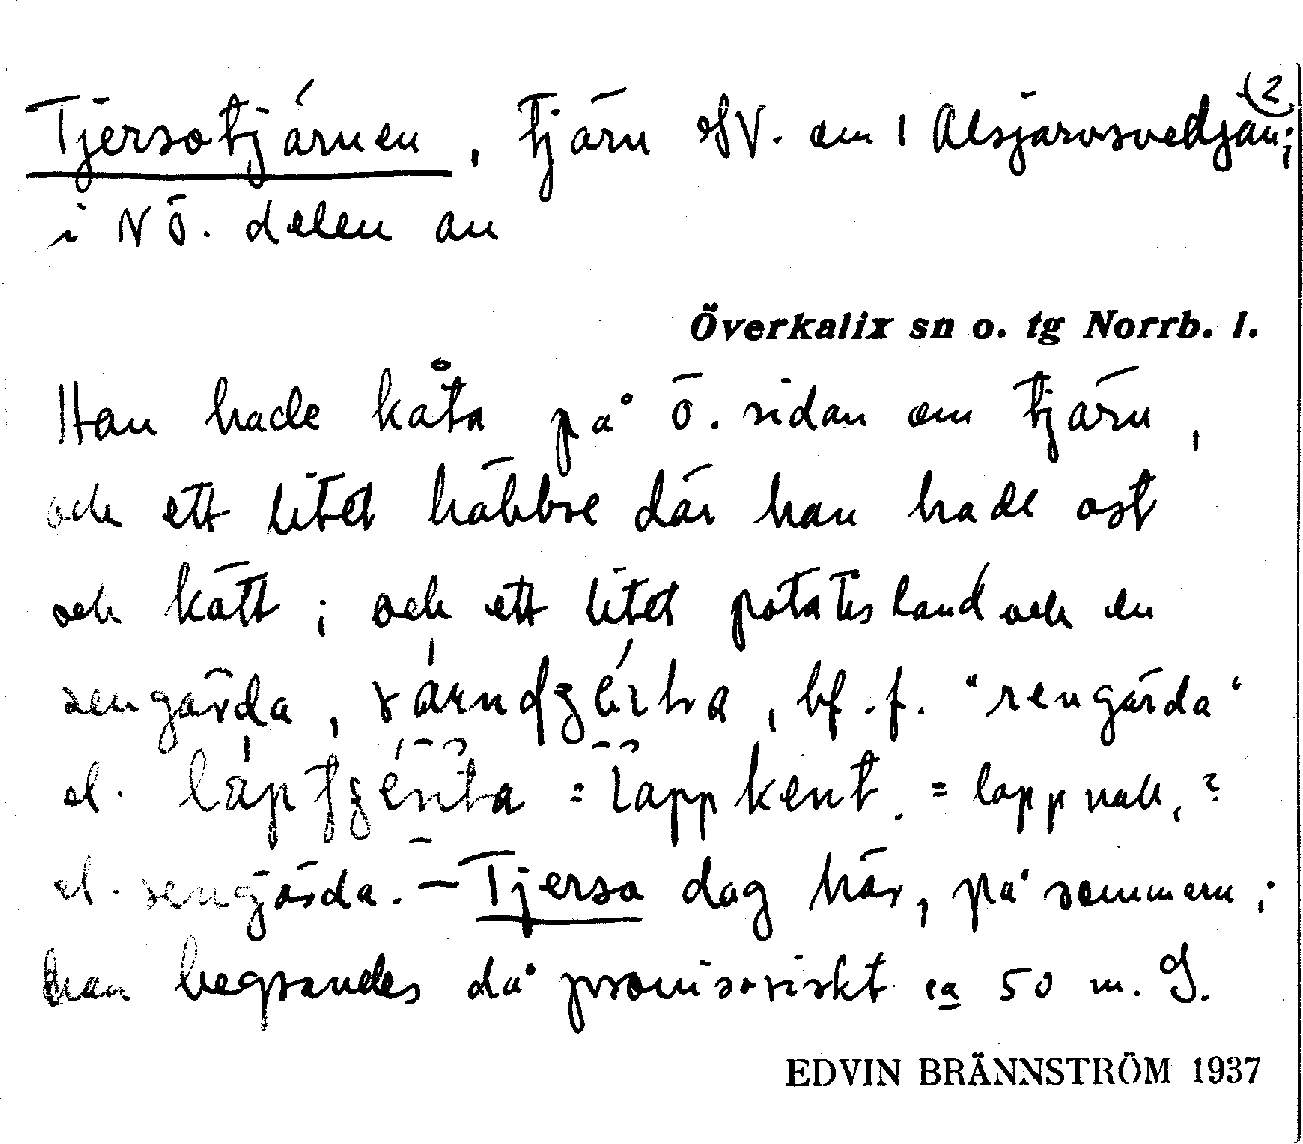 Tjersotjärnen, tjärn SV. om 1 Alsjärvsvedjan; (2
i NÖ. delen av
Överkalix sn o. tg Norrb. l.
Han hade kåta på ö. sidan om tjärn,
och ett litet häbbre där han hade ost
och kött; och ett litet potatisland och en
rengärda, bf. f. "rengärda"
el. = lappkent. = lappvall, ?
el. rengärda. — Tjersa dog här, på sommarn;
han begravdes då provisoriskt ca 50 m. S.
EDVIN BRÄNNSTRÖM 1937